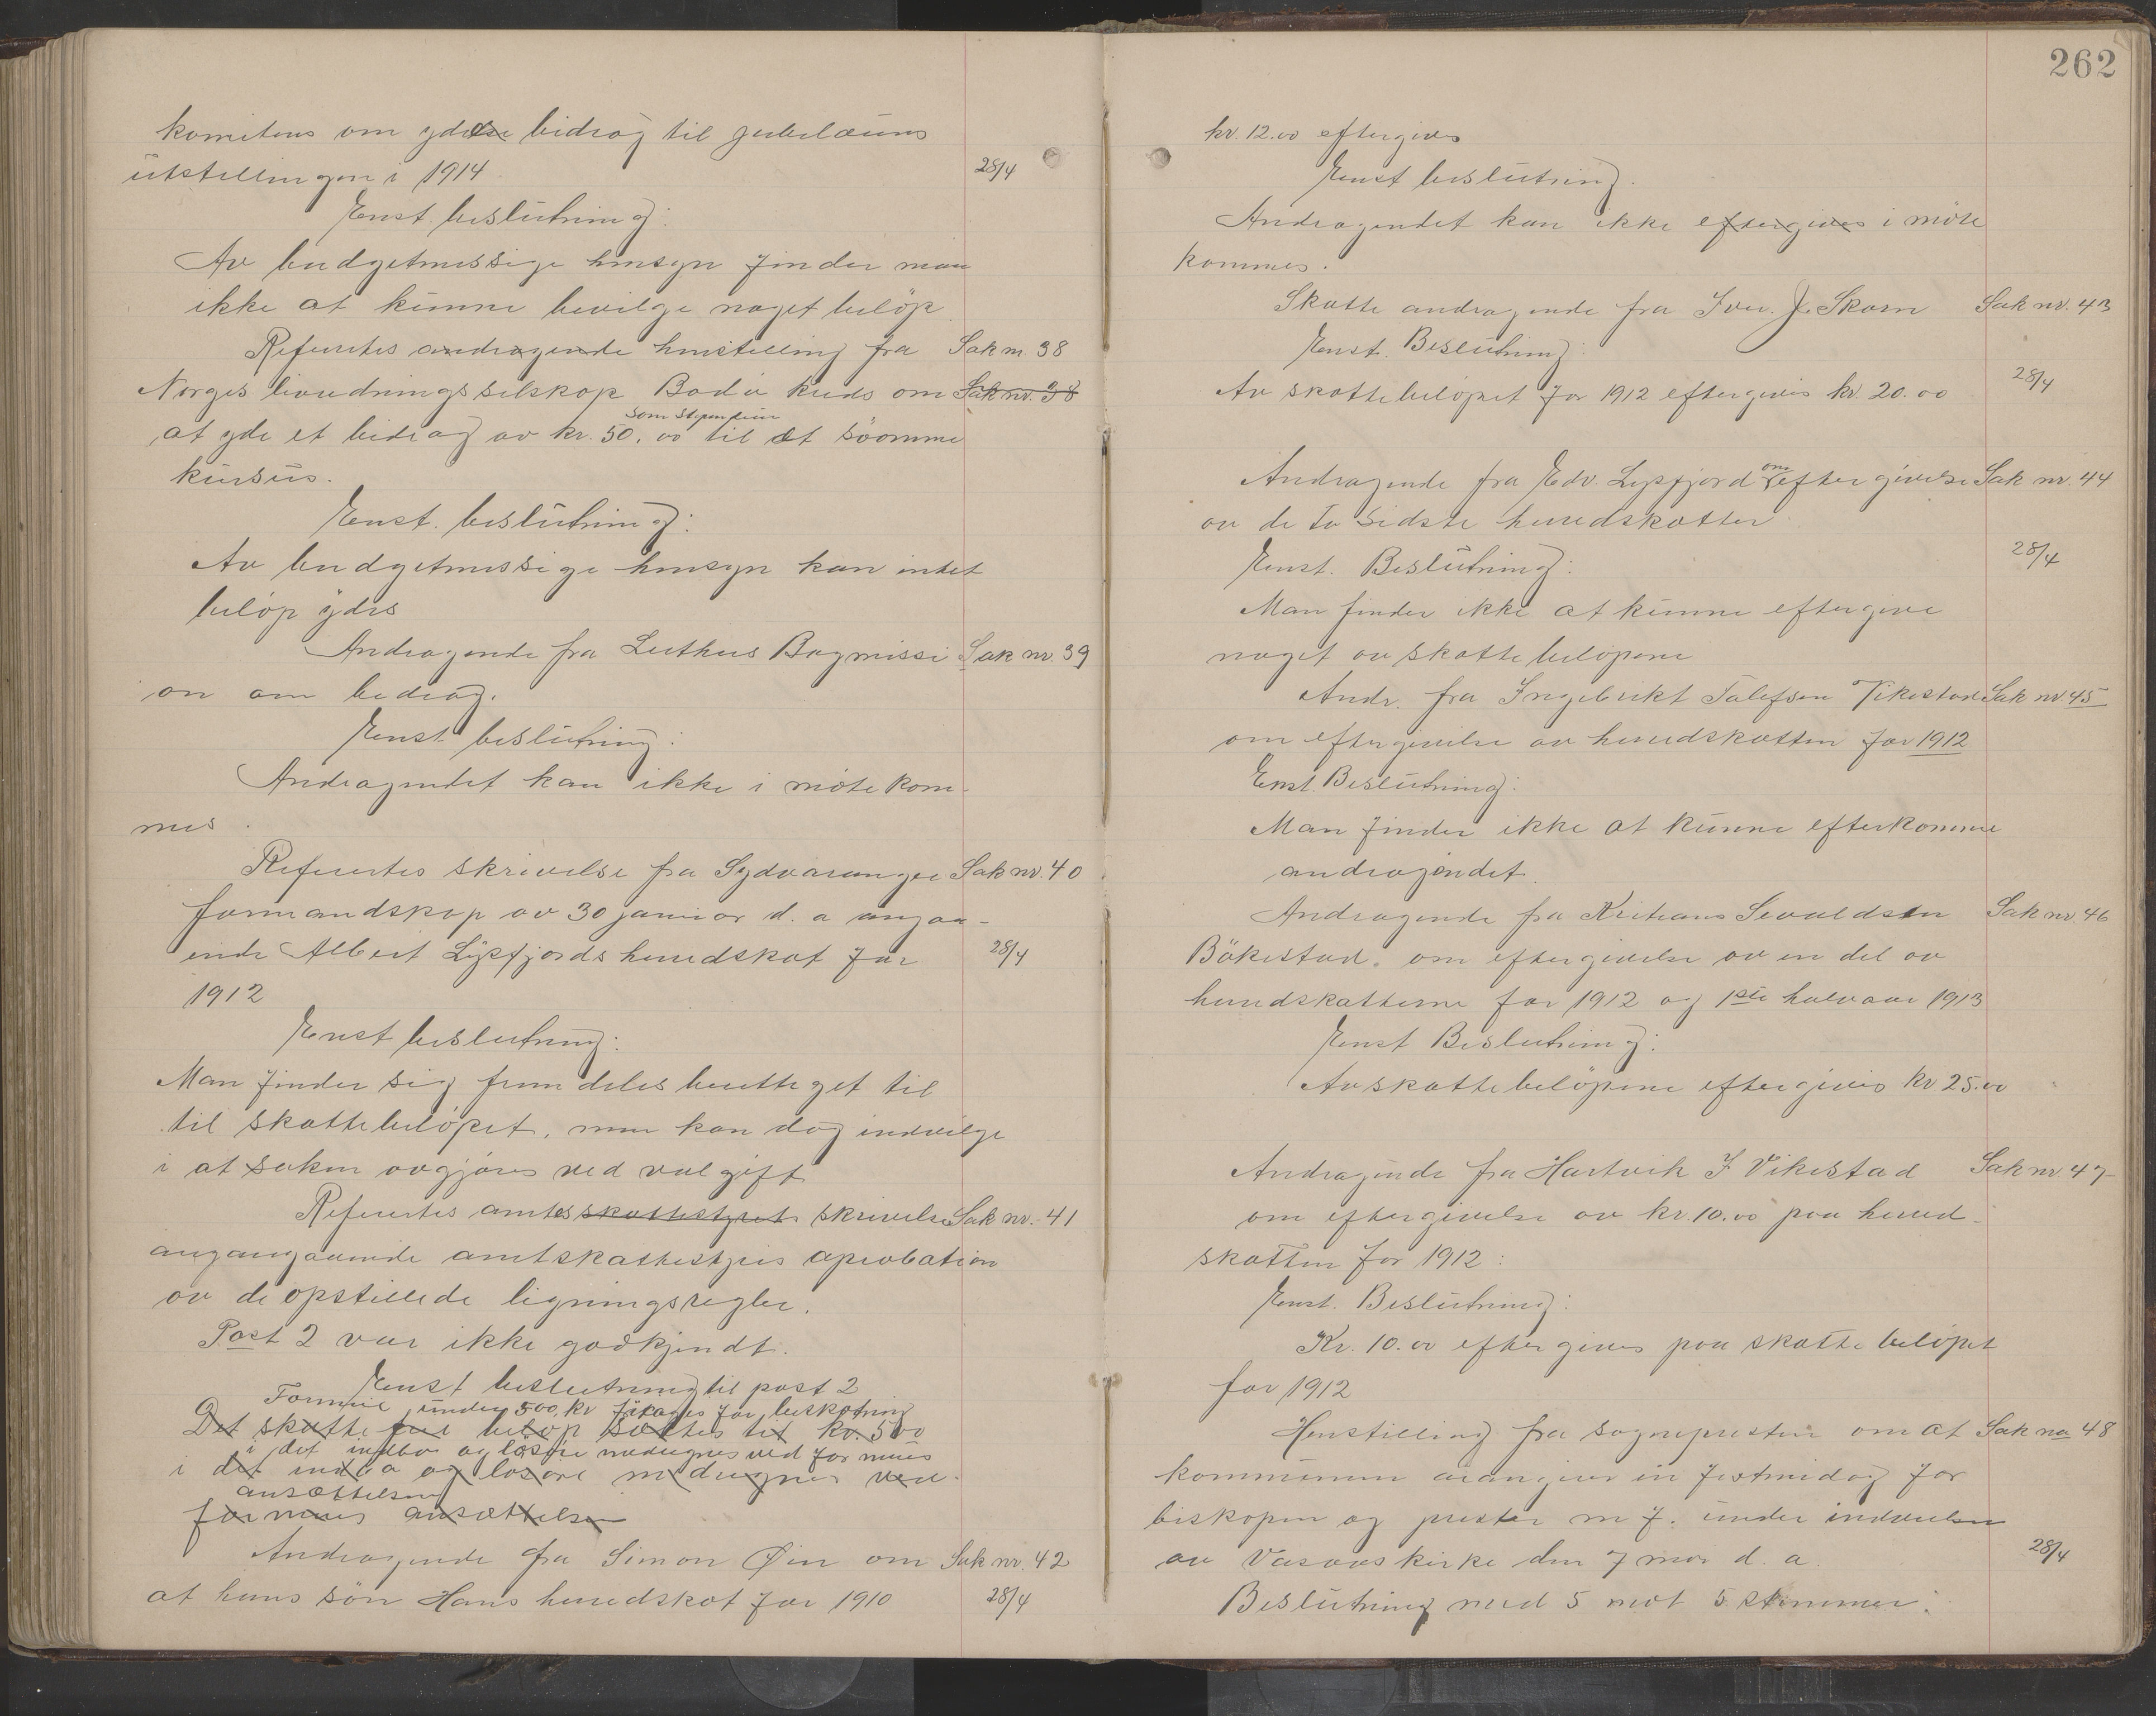 komiteens om yde bidrag til jubelæums
utstillingen i 1914 28/4
Enst. beslutning:
Av budgetmessige hensyn finder man
ikke at kunne bevilge noget belöp
Refertes andragende henstilling fra Sak nr 38
Norges livredningsselskap Bodø kreds om Sak nr. 38
som stipendium
at yde et bidrag av kr. 50.00 til et svømme
kursus.
Enst. beslutning:
Av budgetmessige hensyn kan intet
belöp ydes
Andragende fra Luthers Bogmissi Sak nr. 39
on om bedrag.
Enst beslutning:
Andragendet kan ikke i möte kom-
mes.
Refertes skrivelse fra Sydvaranger Sak nr. 40
formandskap av 30 januar d. a angaa-
ende Albert Lysfjords herredskat for 28/4
1912
Enst beslutning:
Man finder sig fremdeles berettiget til
til skattebelöpet, men kan dog indvilge
i at saken avgjöres ved valgift
Refertes amtes skattestyrets skrivelse Sak nr. 41
angangaaende amtskattestyres aprobation
av de opstillede ligningsregler.
Post 2 var ikke godkjendt.
Enst beslutning til post 2
Formue under 500, kr fritages for beskatning
Det skatte frie belöp sættes til kr. 500
i det indbo og lösöre medregnes ved formues
i det indbo og losöre medregnes ved
ansættelsen
formues ansættelsen
Andragende fra Simon Øien om Sak nr. 42
at hans sön Hans herredskat for 1910 28/4
262
kr. 12.00 eftergives
Enst beslutning.
Andragendet kan ikke eftergives i möte
kommes.
Skatte andragende fra Iver. J. Skorn Sak nr. 43
Enst. Beslutning:
Av skattebelöpet for 1912 eftergives kr. 20.00 28/4
om
Andragende fra Edv. Lysfjord eftergivelse Sak nr. 44
av de to sidste herredskatter
Enst. Beslutning: 28/4
Man finder ikke at kunne eftergive
noget av skattebelöpene
Andr. fra Ingebrikt Tolefsen Vikestad Sak nr. 45
om eftergivelse av herredskatten for 1912
Enst. Beslutning:
Man finder ikke at kunne efterkomme
andragendet.
Andragende fra Kristians Sevaldsen Sak nr. 46
Bökestad. om eftergivelse av en del av
herredskatterne for 1912 og 1ste halvaar 1913
Enst Beslutning:
Av skattebelöpene eftergives kr 25.00
Andragende fra Hartvik J Vikestad Sak nr. 47
om eftergivelse av kr. 10.00 paa herred-
skatten for 1912:
Enst. Beslutning:
Kr. 10.00 eftergives paa skatte belöpet
for 1912
Henstilling fra sognepresten om at Sak no 48
kommunen arangerer en festmidag for
biskopen og prester m f. under indvielsen
av Vasaas kirke den 7 mai d. a. 28/4
Beslutning med 5 mot 5 stemmer: